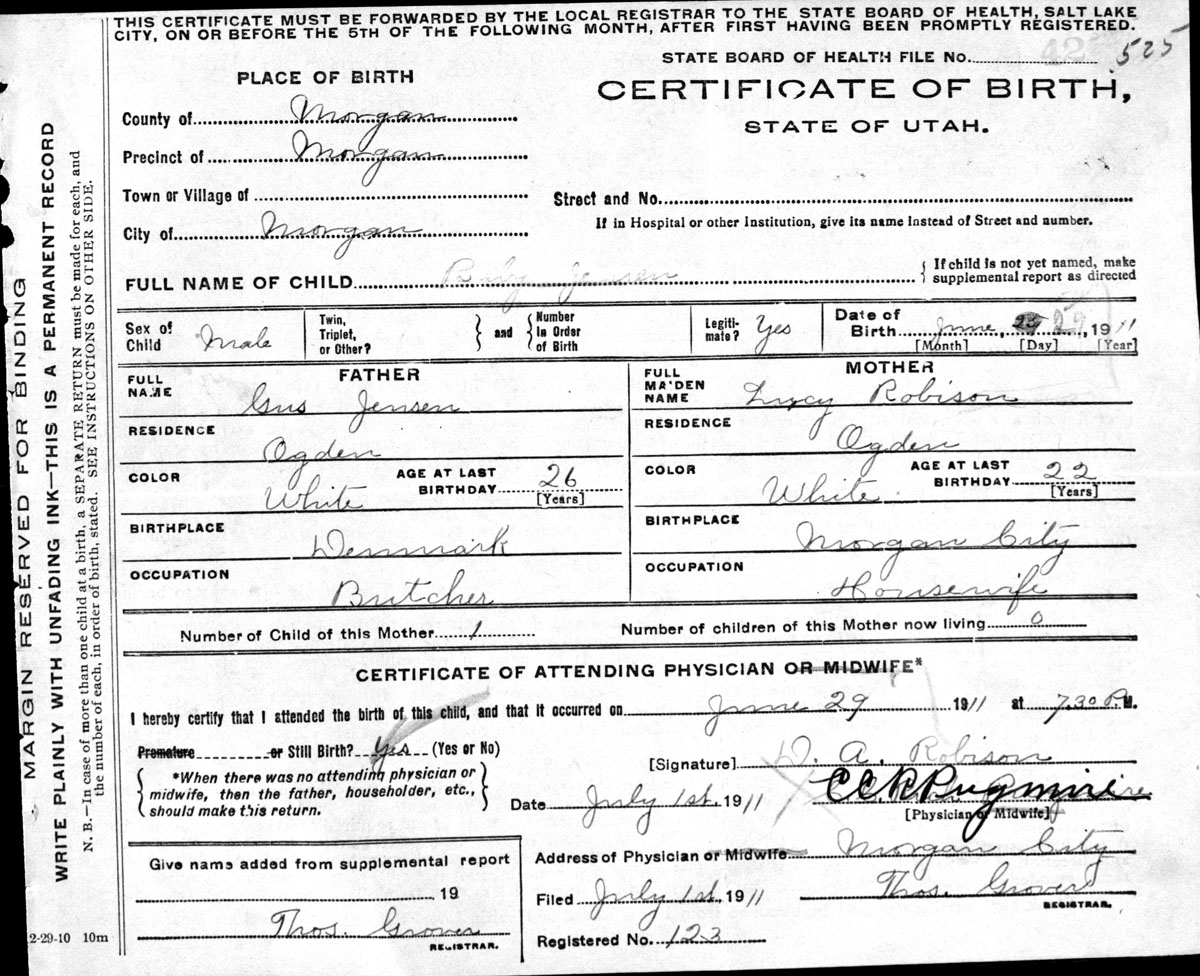 THIS CERTIFICATE MUST BE FORWARDED BY THE LOCAL REGISTRAR TO THE STATE BOARD OF HEALTH, SALT LAKE
CITY, ON OR BEFORE THE 5TH OF THE FOLLOWING MONTH, AFTER FIRST HAVING BEEN PROMPTLY REGISTERED.
STATE BOARD OF HEALTH FILE No. 525
PLACE OF BIRTH
CERTIFICATE OF BIRTH,
STATE OF UTAH.
County of Morgan
Precinct of Morgan
Town or Village of
Street and No.
City of Morgan
If in Hospital or other Institution, give its name instead of Street and number.
FULL NAME OF CHILD Baby Jensen
If child is not yet named, make
supplemental report as directed
Sex of Child Male
Twin, Triplet, or Other?
and
Number in Order of Birth
Legiti-mate? Yes
Date of Birth June, 29, 1911
[Month] [Day] [Year]
FATHER
FULL NAME Gus Jensen
RESIDENCE Ogden
COLOR White
AGE AT LAST BIRTHDAY 26
[Years]
BIRTHPLACE Denmark
OCCUPATION Butcher
MOTHER
FULL MAIDEN NAME Lucy Robison
RESIDENCE Ogden
COLOR White
AGE AT LAST BIRTHDAY 22
[Years]
BIRTHPLACE Morgan City
OCCUPATION Housewife
Number of Child of this Mother 1
Number of children of this Mother now living 0
CERTIFICATE OF ATTENDING PHYSICIAN OR MIDWIFE*
I hereby certify that I attended the birth of this child, and that it occurred on June 29 1911 at 7.30 P.M.
Premature or Still Birth? Yes (Yes or No)
*When there was no attending physician or
midwife, then the father, householder, etc.,
should make this return.
[Signature] D. A. Robison
C C R Pugmire
[Physician or Midwife]
Date July 1st. 1911
Give name added from supplemental report
19
Thos. Grover
REGISTRAR.
Address of Physician or Midwife Morgan City
Filed July 1st, 1911
Thos. Grover
REGISTRAR.
Registered No. 123
2-29-10 10m
MARGIN RESERVED FOR BINDING
WRITE PLAINLY WITH UNFADING INK—THIS IS A PERMANENT RECORD
N. B.—In case of more than one child at a birth, a SEPARATE RETURN must be made for each, and
the number of each, in order of birth, stated. SEE INSTRUCTIONS ON OTHER SIDE.